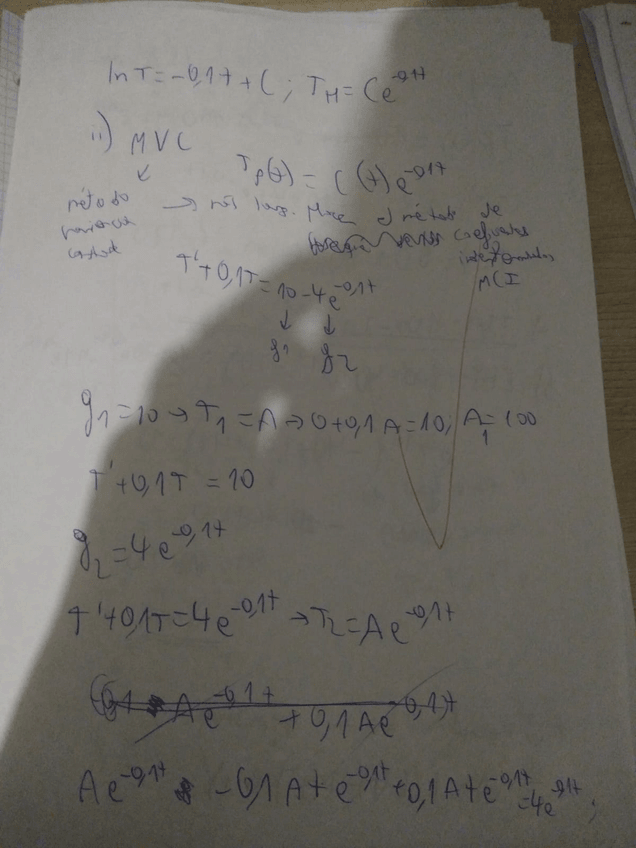 ln T = -0,1t + C ; T_H = Ce^-0,1t
ii) MVC
T_p(t) = C(t)e^-0,1t
método
→ más larg. Mirar el método de
constante
coeficientes
indeterminados
MCI
T' + 0,1T = 10 - 4e^-0,1t
↓ ↓
g1 g2
g1 = 10 → T1 = A → 0 + 0,1A = 10, A1 = 100
T' + 0,1T = 10
g2 = 4e^-0,1t
T' + 0,1T = 4e^-0,1t → T2 = Ae^-0,1t
Ae^-0,1t + 0,1Ae^-0,1t
Ae^-0,1t - 0,1Ate^-0,1t + 0,1Ate^-0,1t = 4e^-0,1t ;